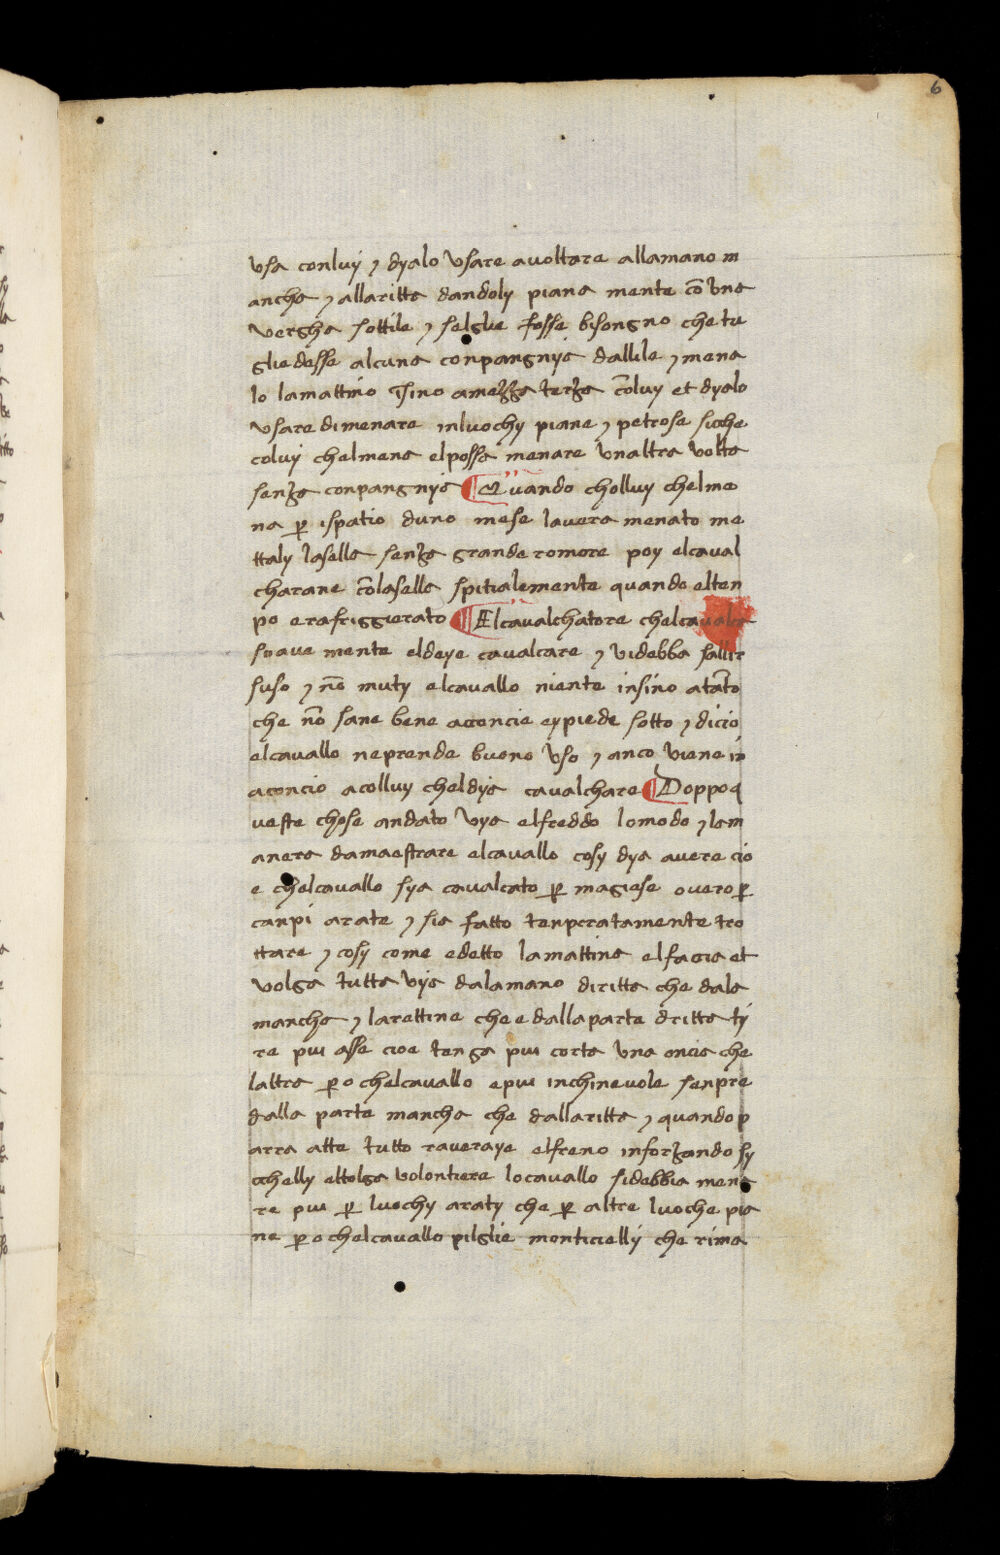 6
usa conluy ⁊ dyalo usare avoltare allamano m
ancha ⁊ allaritta dandoly piana mente cō una
vergha sottile ⁊ selglie fosse bisongno che tu
gliedesse alcuna conpangnya dallile ⁊ mena
lo lamattino isino amezza terza cōluy et dyalo
usare dimenare inluochy piane ⁊ petrose siche
coluy chelmena elpossa menare unaltra volta
senza conpangnya ¶ Quando cholluy chelme
na ꝑ ispatio duno mese lavera menato me
ttaly lasella senza grande romore poy elcaval
charane cōlasella spitialemente quando elten
po erafriggierato ¶ Elcavalchatore chelcavalca
soave mente eldeye cavalcare ⁊ videbba sallir
suso ⁊ nō muty elcavallo niente insino atāto
che nō sane bene aconcie eypiede sotto ⁊ dicio
elcavallo neprende buono uso ⁊ anco viene in
aconcio acolluy cheldya cavalchare ¶ Doppoq
veste chose andato vya elfreddo lomodo ⁊ lam
anera damaestrare elcavallo cosy dya avere cio
e chelcavallo sya cavalcato ꝑ magiese overo ꝑ
canpi arate ⁊ sia fatto tenperatamente tro
ttare ⁊ cosy come edetto lamattina elfacia et
volga tutta vya dalamano diritta che dala
mancha ⁊ larettine che e dallaparte dritta ty
re piu asse cioe tenga piu corta una oncia che
laltra ꝑo chelcavallo epiu inchinevole senpre
dalla parte mancha che dallaritta ⁊ quando p
arra atte tutto raveraye elfreno inforzando sy
chelly eltolga volontiere locavallo sidebbia mena
re piu ꝑ luochy araty che ꝑ altre luoche pia
ne ꝑo chelcavallo pilglie monticielly che rima